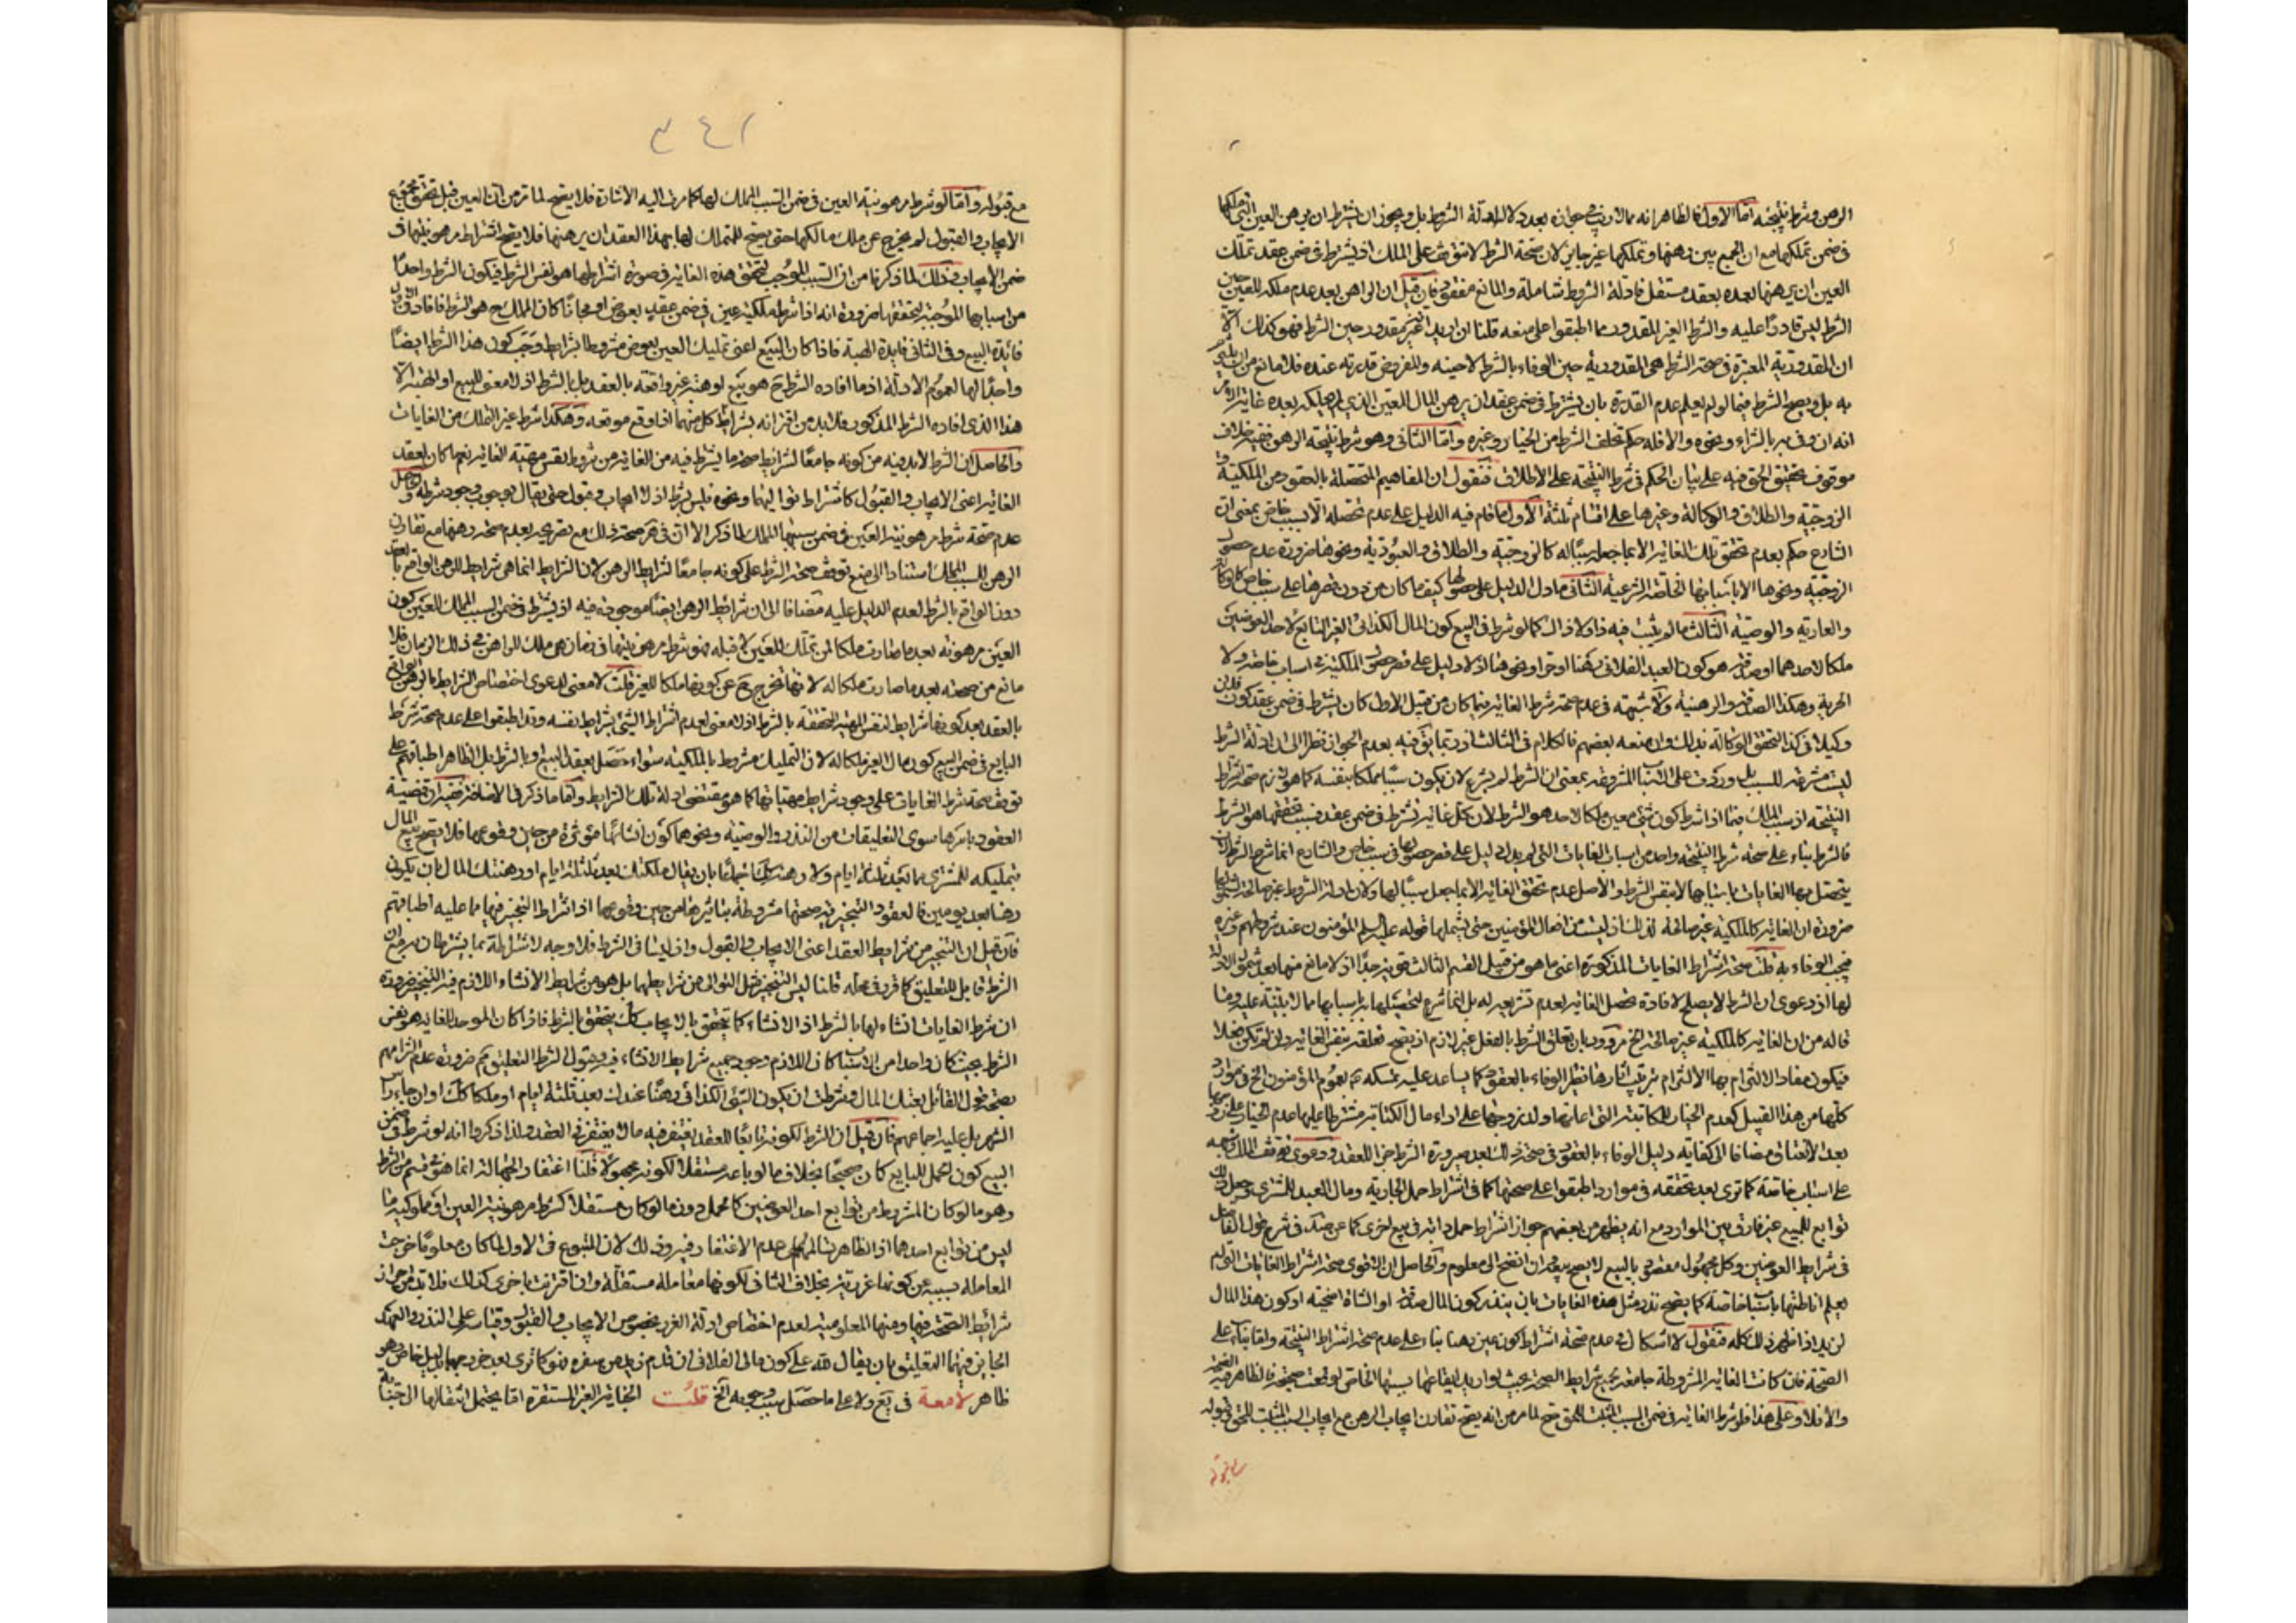 الرهن وشرط نتيجته امّا الاول فالظاهر انه مما لا ريب في جوازه بعد دلالة ادلّة الشروط بل ويجوز ان يشترط ان يرهن العين التي تملكها
في ضمن تملكها مع ان الجمع بين رهنها وتملكها غير جايز لان صحة الشرط لا تتوقف على الملك اذ يشترط في ضمن عقد تملك
العين ان يرهنها بعده بعقد مستقل فادلة الشروط شاملة والمانع مفقود فان قيل ان الراهن بعد عدم ملكه للعين حين
الشرط ليس قادرًا عليه والشرط الغير المقدور مما اطبقوا على منعه قلنا ان اريد انه غير مقدور حين الشرط فهو كذلك الّا
ان المقدورية المعتبرة في صحة الشرط هي المقدورية حين الوفاء بالشرط لا حينه والمفروض قدرته عنده فلا مانع من
به بل ويصح الشرط فيما لو لم يعلم عدم القدرة بان يشترط في ضمن عقد ان يرهن المال المعين الذي لم يملكه بعده غاية الامر
انه ان وفى به بالشراء ونحوه والا فله حكم تخلف الشرط من الخيار وغيره وامّا الثاني وهو شرط نتيجة الرهن ففيه خلاف
موقوف تحقيق الحق فيه على بيان الحكم في شرط النتيجة على الاطلاق فنقول ان المفاهيم المتحصلة بالعقود من الملكية و
الزوجية والطلاق والوكالة وغيرها على اقسام ثلثة الاول ما قام فيه الدليل على عدم تحصله الا بسبب خاص بمعنى ان
الشارع حكم بعدم تحقق تلك الغاية الا بما جعله سببًا له كالزوجية والطلاق والعبودية ونحوها ضرورة عدم حصول
الزوجية ونحوها الا باسبابها الخاصة الشرعية الثاني ما دل الدليل على حصولها كيفما كان من دون قصرها على سبب خاص كالوكالة
والعارية والوصية الثالث ما لم يثبت فيه ذا ولا ذاك كما لو شرط في البيع كون المال الكذائي الغير التابع لاحد العوضين
ملكا لاحدهما او صدقة او كون العبد الفلاني رهنا او حرا ونحو هذا اذ لا دليل على قصر حصول الملكية في اسباب خاصة ولا
الحرية وهكذا الصدقة والرهنية ولا شبهة في عدم صحة شرط الغاية فيما كان من قبيل الاول كان يشترط في ضمن عقد كون فلان
وكيلا في كذا لتحقق الوكالة بذلك وان منعه بعضهم فالكلام في الثالث وربما يق فيه بعدم الجواز نظرا الى ان ادلة الشرط
ليست مشرعة للسبب بل وردت على الاسباب المشروعة بمعنى ان الشرط لم يشرع لان يكون سببًا مملكا بنفسه كما هو لازم صحة شرط
النتيجة اذ سبب الملك فيما اذا شرط كون شيء معين ملكا لاحد هو الشرط لان كل غاية تشترط في ضمن عقد فسبب تحققها هو الشرط
فالشرط بناء على صحة شرط النتيجة واحد من اسباب الغايات التي لم يدل دليل على قصر حصولها في سبب خاص والشارع انما شرع الشرط لان
يتحصل بها الغايات باسبابها لا بنفس الشرط والاصل عدم تحقق الغاية الا بما جعل سببًا لها ولان ادلة الشروط غير صالحة لشمولها
ضرورة ان الغاية كالملكية غير صالحة لذلك اذ ليست من افعال المؤمنين حتى يشملها قوله عليه السلم المؤمنون عند شروطهم وغيره
فيجب الوفاء به قلت صحة اشتراط الغايات المذكورة اعني ما هو من قبيل القسم الثالث قوية جدًا اذ لا مانع منها بعد شمول الادلة
لها اذ دعوى ان الشرط لا يصلح لافادة تحصل الغاية لعدم تشريعه له بل انما شرع لتحصيلها باسبابها مما لا بينة عليه وما
قاله من ان الغاية كالملكية غير صالحة الخ مردود بان تعلق الشرط بالفعل غير لازم اذ يصح تعلقه بنفس الغاية وان لم تكن فعلا
فيكون مفاد الالتزام بها الالتزام بترتيب آثارها نظير الوفاء بالعقود كما يساعد عليه تمسكه ع بعموم المؤمنون الخ في موارد
كلها من هذا القبيل كعدم الخيار للمكاتبة التي اعانها ولد زوجها على اداء مال الكتابة مشترطا عليها عدم الخيار على زوجها
بعد الانعتاق مضافا الى كفاية دليل الوفاء بالعقود في صحة ذلك بعد صيرورة الشرط جزءا للعقد ودعوى توقف الملك
على اسباب خاصة كما ترى بعد تحققه في موارد اطبقوا على صحتها كما في اشتراط حمل الجارية ومال العبد للمشتري وجعل ذلك
توابع للبيع غير فارق بين الموارد مع انه يظهر من بعضهم جواز اشتراط حمل دابة في بيع اخرى كما عن صد في شرح قول الفاضل
في شرايط العوضين وكل مجهول مقصود بالبيع لا يصح بيعه وان انضم الى معلوم والحاصل ان الاقوى صحة اشتراط الغايات التي لم
يعلم اناطتها باسباب خاصة كما يصح نذر مثل هذه الغايات بان ينذر كون المال صدقة او الشاة اضحية او كون هذا المال
لزيد اذا ظهر ذلك كله فنقول لا اشكال في عدم صحة اشتراط كون عين رهنا بناء على عدم صحة اشتراط النتيجة واما بناء على
الصحة فان كانت الغاية المشروطة جامعة لجميع شرايط الصحة بحيث لو اريد ايقاعها بسببها الخاص لوقعت صحيحة فالظاهر فيه الصحة
والا فلا وعلى هذا فلو شرط الغاية في ضمن السبب المثبت للحق صح لما مر من انه يصح تقارن ايجاب الرهن مع ايجاب السبب المثبت للحق وقبوله
مع قبوله
٣٤٢
مع قبوله وامّا لو شرط مرهونية العين في ضمن السبب المملك لها كما مرت اليه الاشارة فلا يصح لما مر من ان العين قبل تحقق مجموع
الايجاب والقبول لم يخرج عن ملك مالكها حتى يصح للتملك لها بهذا العقد ان يرهنها فلا يصح اشتراط مرهونيتها في
ضمن الايجاب وذلك لما ذكرنا من ان السبب الموجب لتحقق هذه الغاية في صورة اشتراطها هو نفس الشرط فيكون الشرط واحدًا
من اسبابها الموجبة لتحققها ضرورة انه اذا شرط ملكية عين في ضمن عقد بعوض او مجانًا كان المملك ح هو الشرط فافاد في الاول
فائدة البيع وفي الثاني فايدة الهبة فاذا كان البيع اعني تمليك العين بعوض مشروطا بشرايط وجب كون هذا الشرط ايضًا
واجدًا لها لعموم الادلة اذ ما افاده الشرط ح هو بيع او هبة غير واقعة بالعقد بل بالشرط اذ لا معنى للبيع او الهبة الّا
هذا الذي افاده الشرط المذكور فلا بد من اقترانه بشرايط كل منهما اذا وقع موقعه وهكذا شرط غير التملك من الغايات
والحاصل ان الشرط لابد فيه من كونه جامعًا لشرايط صحة ما يشترط فيه من الغاية من شروط نفس مهيّة الغاية نعم ما كان لعقد
الغاية اعني الايجاب والقبول كاشتراط تواليهما ونحوه فليس بشرط اذ لا ايجاب وقبول حتى يقال بوجوب وجود شرطه
عدم صحة شرط مرهونية العين في ضمن سببها المملك لما ذكر الا ان في هر صحة ذلك مع تصريحه بعدم صحة رهنها مع تقارن
الرهن للسبب المملك استنادا الى منع توقف صحة الشرط على كونه جامعًا لشرايط الرهن لان الشرايط انما هي شرايط للرهن الواقع بالعقد
دون الواقع بالشرط لعدم الدليل عليه مضافا الى ان شرائط الرهن ايضًا موجودة فيه اذ يشترط في ضمن السبب المملك للعين كون
العين مرهونة بعد ما صارت ملكا لمن تملك للعين لا قبله فهو شرط مرهونيتها في زمان هي ملك الراهن في ذلك الزمان فلا
مانع من صحته بعد ما صارت ملكا له لانها تخرج ح عن كونها ملكا للغير قلت لا معنى لدعوى اختصاص الشرايط بالرهن الواقع
بالعقد بعد كونها شرايط لنفس المهية المتحققة بالشرط اذ لا معنى لعدم اشتراط الشيء بشرايط نفسه وقد اطبقوا على عدم صحة شرط
البايع في ضمن البيع كون مال الغير ملكا له لان التمليك مشروط بالملكية سواء حصل بعقد البيع او بالشرط بل الظاهر اطباقهم على
توقف صحة شرط الغايات على وجود شرايط مهياتها كما هو مقتضى ادلة تلك الشرايط وأما ما ذكر في الاضافة ففيه ان قضية
العقود باسرها سوى التعليقات من النذر والوصية ونحوهما كون انشائها مؤثرة من حين وقوعها فلا يصح بيع المال
بتمليكه للمشتري بما بعد ثلثة ايام ولا رهنه كك اجماعًا بان يقال ملكتك بعد ثلثة ايام او رهنتك المال بان يكون
رهنا بعد يومين فالعقود التنجيزية صحتها مشروطة بتاثيرها من حين وقوعها اذ اشتراط التنجيز فيها مما عليه اطباقهم
فان قيل ان التنجيز من شرايط العقد اعني الايجاب والقبول واذ ليسا في الشرط فلا وجه لاشتراطه بما يشترطان به مع ان
الشرط قابل للتعليق كما قرر في محله قلنا ليس التنجيز مثل التوالى من شرايطهما بل هو من شرايط الانشاء اللازم فيه التنجيز ضرورة
ان شرط الغايات انشاء لها بالشرط اذ الانشاء كما يتحقق بالايجاب كك يتحقق بالشرط فاذا كان الموجد للغاية هو نفس
الشرط بحيث كان واحدا من الاسباب كان اللازم وجود جميع شرايط الانشاء فيه وقبول الشرط التعليق مم ضرورة عدم التزامهم
بصحة قول القائل بعتك المال وشرطت ان يكون الشيء الكذائي رهنًا عندك بعد ثلثة ايام او ملكا كك او ان جاء راس
الشهر بل عليه اجماعهم فان قيل ان الشرط لكونه تابعًا للعقد يغتفر فيه ما لا يغتفر في العقد ولذا ذكروا انه لو شرط في ضمن
البيع كون الحمل للبايع كان صحيحًا بخلاف ما لو باعه مستقلا لكونه مجهولا قلنا اغتفار الجهالة انما هو في قسم من الشرط
وهو ما لو كان المشروط من توابع احد العوضين كالحمل دون ما لو كان مستقلا كشرط مرهونية العين او مملوكية ما
ليس من توابع احدهما اذ الظاهر عدم الاغتفار فيه وذلك لان المتبوع في الاول لما كان معلومًا خرجت
المعاملة بسببه عن كونها غررية بخلاف الثاني لكونها معاملة مستقلة وان اقترنت باخرى كذلك فلابد من احراز
شرائط الصحة فيها ومنها المعلومية لعدم اختصاص ادلة الغرر بخصوص الايجاب والقبول وقياسه على النذر والعهد
الجايز فيهما التعليق بان يقال لله على كون مالي الفلاني ان قدم زيد من سفره هو كما ترى بعد خروجهما بدليل خاص وهو
ظاهر لامعة في يع ولا على ما حصل سبب وجوبه الخ قلت الجناية الغير المستقرة اما يحتمل انتقالها الى جناية